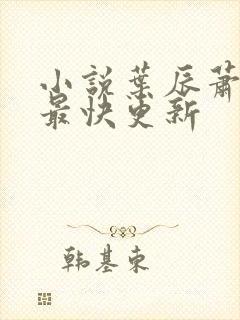 小説葉辰蕭
最快更新
韩基東